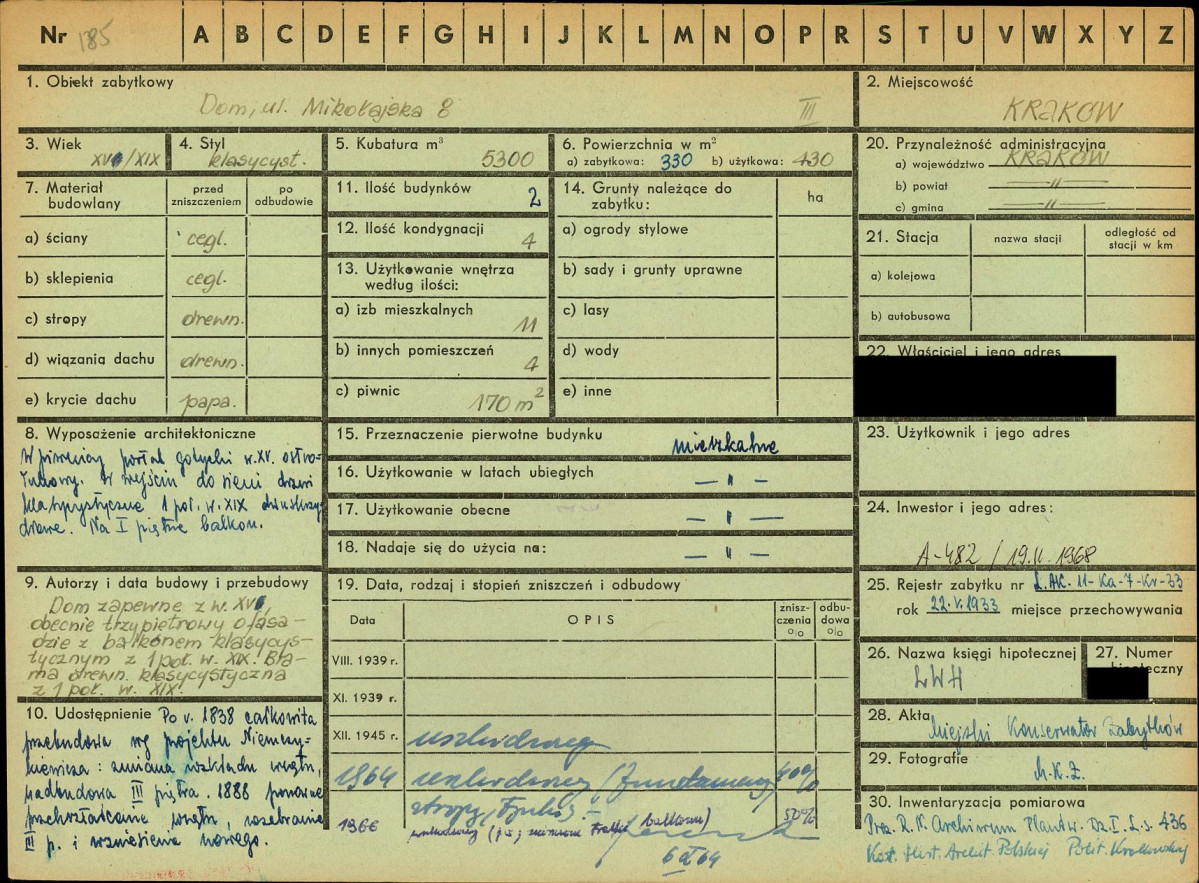 Nr 185 A B C D E F G H I J K L M N O P R S T U V W X Y Z
1. Obiekt zabytkowy
Dom, ul. Mikołajska 8 III
2. Miejscowość
KRAKÓW
3. Wiek
XV/XIX
4. Styl
klasycyst.
5. Kubatura m³
5300
6. Powierzchnia w m²
a) zabytkowa: 330 b) użytkowa: 430
7. Materiał budowlany
przed zniszczeniem
po odbudowie
a) ściany cegl.
b) sklepienia cegl.
c) stropy drewn.
d) wiązania dachu drewn.
e) krycie dachu papa.
11. Ilość budynków 2
12. Ilość kondygnacji 4
13. Użytkowanie wnętrza
według ilości:
a) izb mieszkalnych 11
b) innych pomieszczeń 4
c) piwnic 170 m²
14. Grunty należące do
zabytku:
ha
a) ogrody stylowe
b) sady i grunty uprawne
c) lasy
d) wody
e) inne
20. Przynależność administracyjna
a) województwo KRAKÓW
b) powiat —"—
c) gmina —"—
21. Stacja
nazwa stacji
odległość od
stacji w km
a) kolejowa
b) autobusowa
22. Właściciel i jego adres
8. Wyposażenie architektoniczne
W piwnicy portal gotycki w. XV. ostro-
łukowy. W wejściu do sieni drzwi
klasycystyczne 1 poł. w. XIX dwuskrzy-
dłowe. Na I piętrze balkon.
15. Przeznaczenie pierwotne budynku mieszkalne
16. Użytkowanie w latach ubiegłych — " —
17. Użytkowanie obecne — " —
18. Nadaje się do użycia na: — " —
23. Użytkownik i jego adres
24. Inwestor i jego adres:
A-482 / 19.II.1968
9. Autorzy i data budowy i przebudowy
Dom zapewne z w. XV,
obecnie trzypiętrowy o fasa-
dzie z balkonem klasycys-
tycznym z 1 poł. w. XIX. Bra-
ma drewn. klasycystyczna
z 1 poł. w. XIX.
19. Data, rodzaj i stopień zniszczeń i odbudowy
Data
OPIS
znisz-
czenia
%
odbu-
dowa
%
VIII. 1939 r.
XI. 1939 r.
XII. 1945 r.
1964 40%
stropy,
1966 50%
balkonu)
25. Rejestr zabytku nr L.AK. 11-Ka-7-Kr-33
rok 22.V.1933 miejsce przechowywania
26. Nazwa księgi hipotecznej
LWH
27. Numer
hipoteczny
28. Akta
Miejski Konserwator Zabytków
29. Fotografie
M.K.Z.
30. Inwentaryzacja pomiarowa
Prez. R. N. Archiwum Plantw. Dz. I. L.s. 436
Kat. Hist. Archit. Polskiej Polit. Krakowskiej
10. Udostępnienie Po r. 1838 całkowita
przebudowa wg projektu Niemczy-
kiewicza: zmiana rozkładu wnętrz,
nadbudowa III piętra. 1888 ponowne
przekształcanie wnętrz, rozebranie
III p. i wzniesienie nowego.